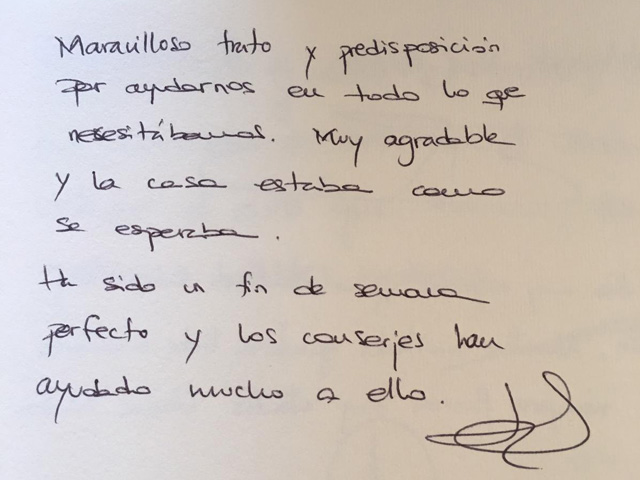 Maravilloso trato y predisposición
por ayudarnos en todo lo que
necesitábamos. Muy agradable
y la casa estaba como
se esperaba.
Ha sido un fin de semana
perfecto y los conserjes han
ayudado mucho a ello.